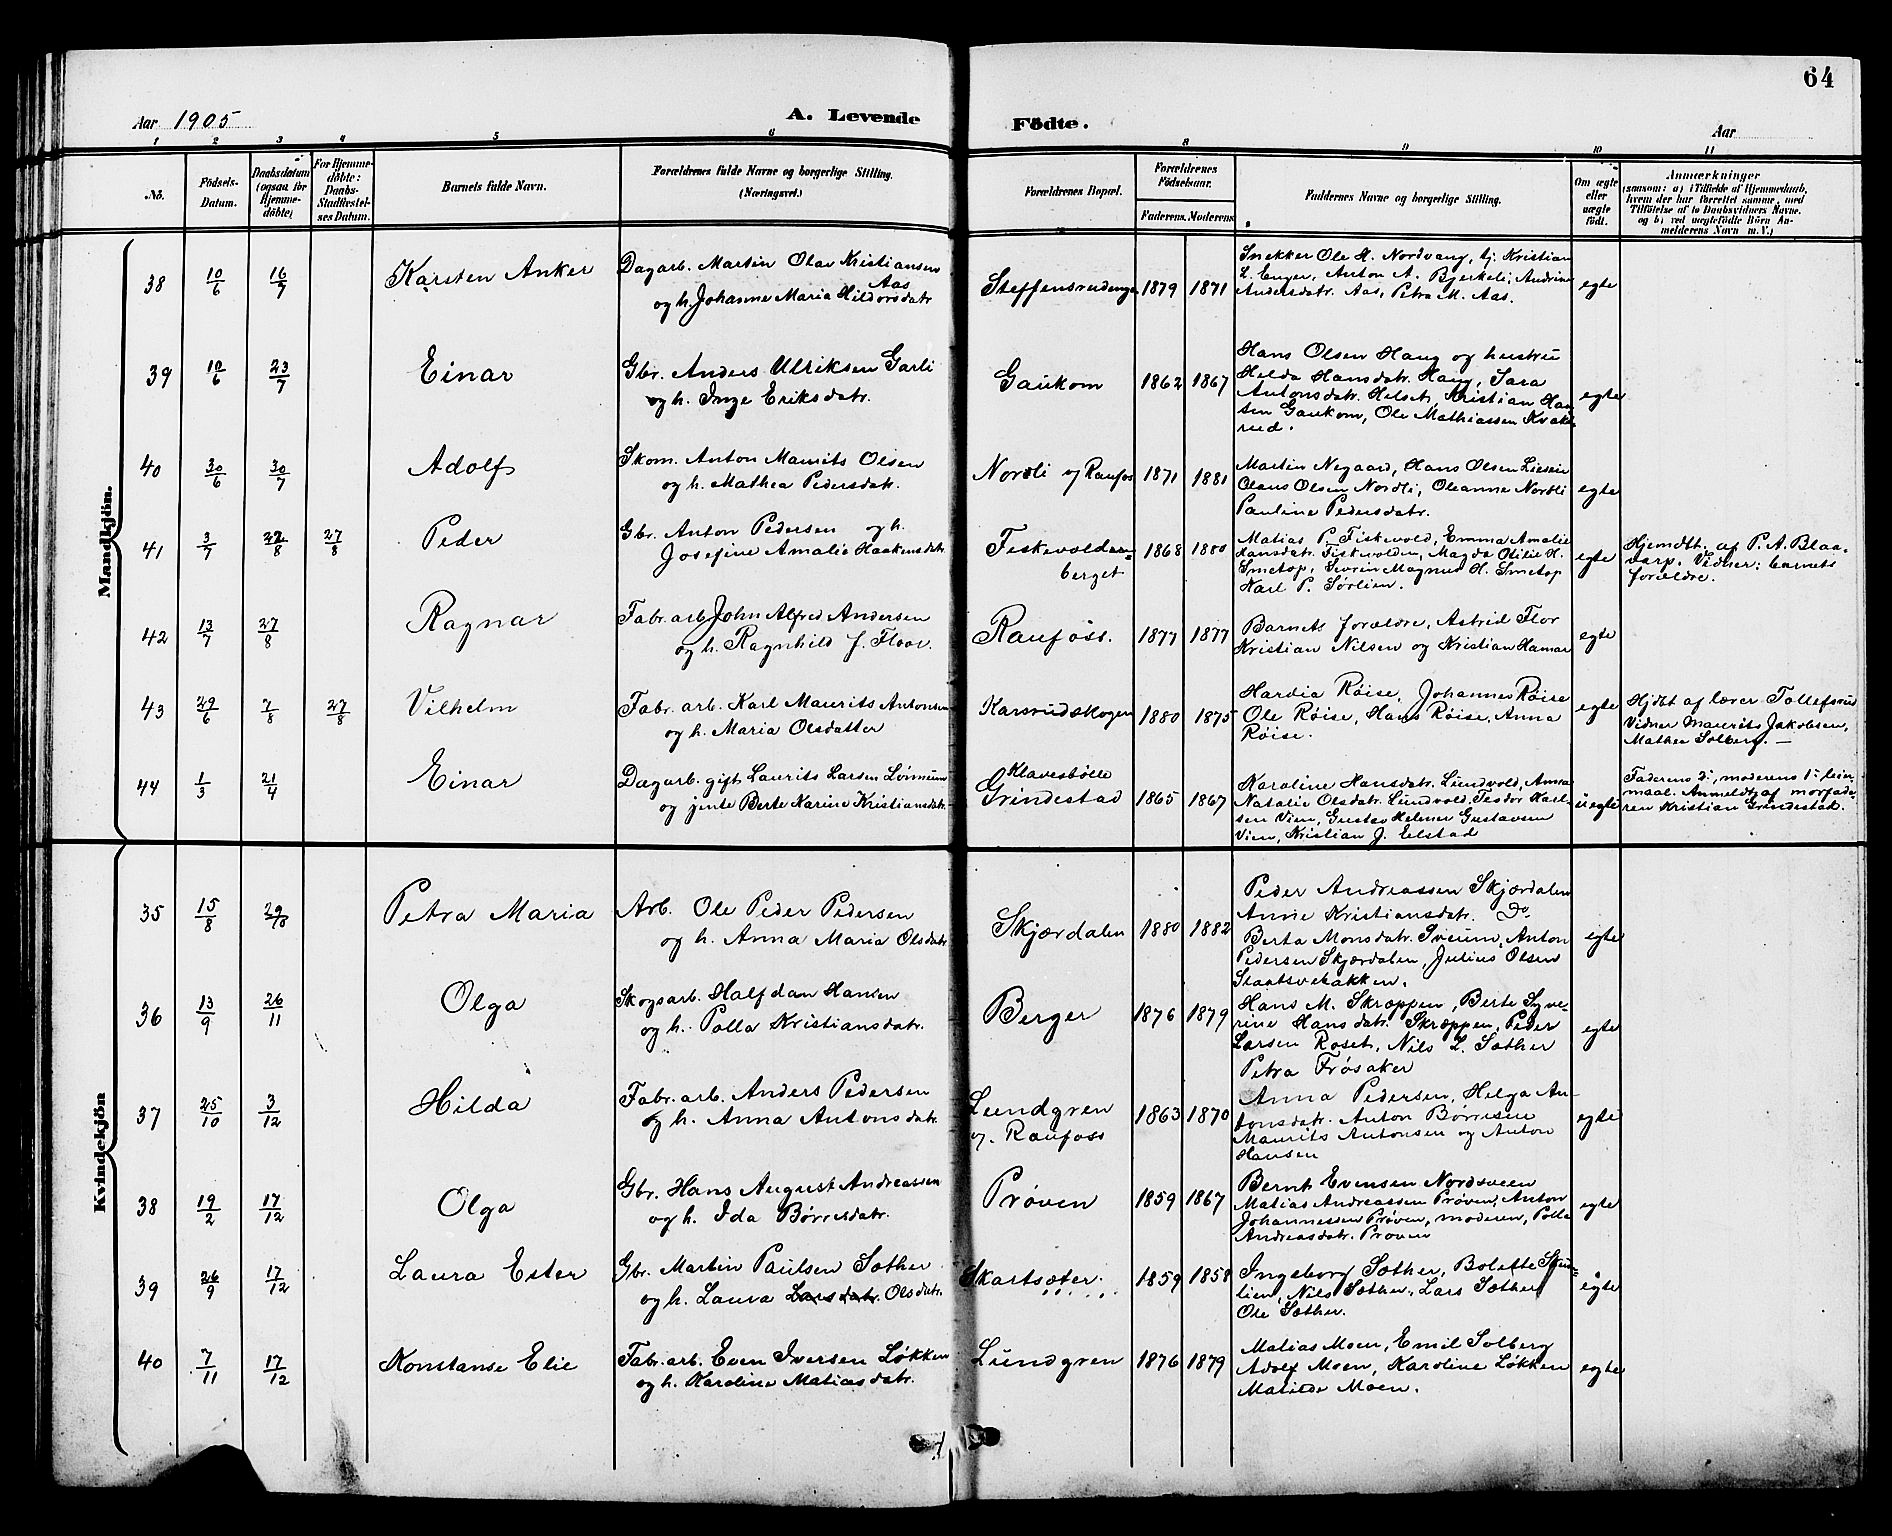 64
Aar 1905
A. Levende Födte.
Aar
1 2 3 4 5 6 8 9 10 11
No.
Födsels-
Datum.
Daabsdatum
(ogsaa for
Hjemme-
döbte)
For Hjemme-
döbte:
Daabs-
Stadfæstel-
ses Datum.
Barnets fulde Navn.
Forældrenes fulde Navne og borgerlige Stilling.
(Næringsvei.)
Forældrenes Bopæl.
Forældrenes
Födselsaar.
Faderens. Moderens
Faddernes Navne og borgerlige Stilling.
Om ægte
eller
uægte
födt.
Anmærkninger
(saasom: a) i Tilfælde af Hjemmedaab,
hvem der har forrettet samme, med
Tilföielse af to Daabsvidners Navne.
og b) ved uægtefödte Börn An-
melderens Navn m. V.)
Mandkjön.
38 10/6 16/7 Karsten Anker
Dagarb. Martin Olav Kristiansen
Aas
og h. Johanne Maria Hildorsdatr
Steffensrudenge 1879 1871
Snekker Ole H. Nordvang, tj. Kristian
L. Enger, Anton A. Bjerkeli, Andrine
Andersdatr. Aas, Petra M. Aas.
egte
39 10/6 23/7 Einar
Gbr. Anders Ulriksen Garli
og h. Inge Eriksdatr.
Gaukom 1862 1867
Hans Olsen Haug og hustru
Hilda Hansdatr. Haug, Sara
Antonsdatr. Helset, Kristian Han
sen Gaukom, Ole Mathiassen Kvake
rud.
egte
40 30/6 30/7 Adolf
Skom. Anton Maurits Olsen
og h. Mathea Pedersdatr.
Nordli v/ Raufos 1871 1881
Martin Nygaard, Hans Olsen Liesen
Olaus Olsen Nordli, Oleanne Nordli
Pauline Pedersdatr.
egte
41 3/7 22/8 27/8 Peder
Gbr. Anton Pedersen og h.
Josefine Amalie Haakensdatr
Fiskevolden-
berget
1868 1880
Matias P. Fiskevold, Emma Amalie
Hansdatr. Fiskevolden, Magda Otilie H.
Smetop, Severin Magnus H. Smetop
Karl P. Sørlien.
egte
Hjemdt. af P. A. Blaa-
varp. Vidner: barnets
forældre.
42 13/7 27/8 Ragnar
Fabr. arb. John Alfred Andersen
og h. Ragnhild f. Floor.
Raufoss. 1877 1877
Barnets forældre, Astrid Flor
Kristian Nilsen og Kristian Hamar
egte
43 29/6 7/8 27/8 Vilhelm
Fabr. arb. Karl Maurits Antonsen
og h. Maria Olsdatter
Karsrudskogen 1880 1875
Hardia Røise, Johannes Røise
Ole Røise, Hans Røise, Anna
Røise.
egte
Hjdbt af lærer Tollefsrud
Vidner Maurits Jakobsen,
Mathea Solberg. —
44 1/3 21/4 Einar
Dagarb. gift Laurits Larsen Lønnum
og jente Berte Karine Kristiansdatr.
Klavesbølle
Grindestad
1865 1867
Karoline Hansdatr. Lundvold, Anna
Natalie Olsdatr. Lundvold, Teodor Karl-
sen Vien, Gustav Helmer Gustavsen
Vien, Kristian J. Eelstad
uegte
Faderens 2', moderens 1' leier-
maal. Anmeldt af morfade-
ren Kristian Grindestad.
Kvindekjön
35 15/8 29/10 Petra Maria
Arb. Ole Peder Pedersen
og h. Anna Maria Olsdatr
Skjærdalen 1880 1882
Peder Andreassen Skjærdalen
Anne Kristiansdatr. Do.
Berta Monsdatr. Sveum, Anton
Pedersen Skjærdalen, Julius Olsen
egte
36 13/9 26/11 Olga
Skogsarb. Halfdan Hansen
og h. Polla Kristiansdatr.
Berger 1876 1879
Hans M. Skræppen, Berte Syve-
rine Hansdatr. Skræppen, Peder
Larsen Roset, Nils L. Sæther
Petra Frøsaker
egte
37 25/10 3/12 Hilda
Fabr. arb. Anders Pedersen
og h. Anna Antonsdatr.
Lundgren
v/. Raufoss
1863 1870
Anna Pedersen, Helga An-
tonsdatr. Anton Børresen
Maurits Antonsen og Anton
Hansen
egte
38 19/2 17/12 Olga
Gbr. Hans August Andreassen
og h. Ida Børresdatr.
Prøven 1859 1867
Bernt Evensen Nordsveen
Matias Andreassen Prøven, Anton
Johannessen Prøven, moderen, Polla
Andreasdatr. Prøven
egte
39 26/9 17/12 Laura Ester
Gbr. Martin Paulsen Sæther
og h. Laura Larsdatr. Olsdatr.
Skartsæter. 1859 1858
Ingeborg Sæther, Bolette Skun-
lien, Nils Sæther, Lars Sæther
Ole Sæther.
egte
40 7/11 17/12 Konstanse Elie
Fabr. arb. Even Iversen Løkken
og h. Karoline Matiasdatr.
Lundgren 1876 1879
Matias Moen, Emil Solberg
Adolf Moen, Karoline Løkken
Matilde Moen.
egte